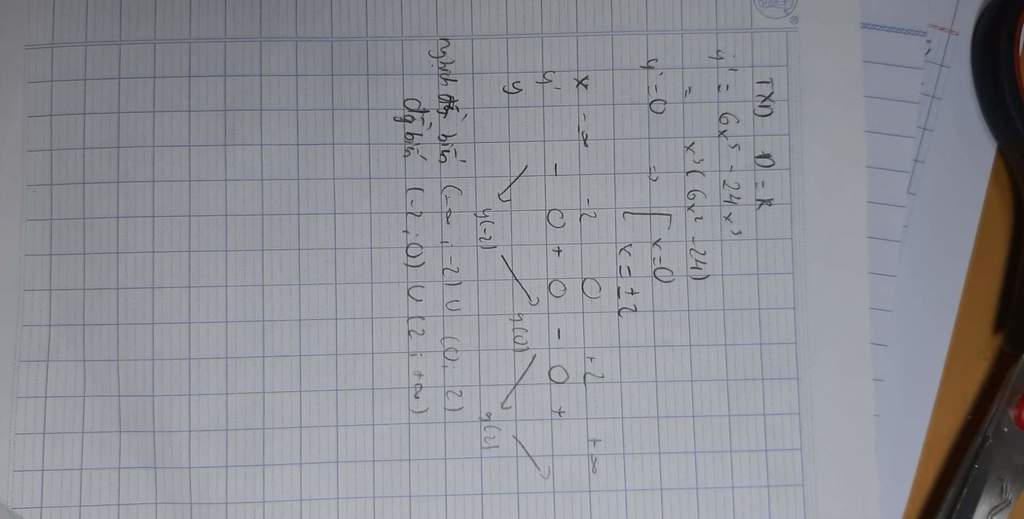 TXD D = R
y' = 6x⁵ - 24x³
= x³(6x² - 24)
y' = 0 => [ x = 0
x = ±2
x -∞ -2 0 +2 +∞
y' - 0 + 0 - 0 +
y ↘ y(-2) ↗ y(0) ↘ y(2) ↗
nghịch biến (-∞; -2) ∪ (0; 2)
đồng biến (-2; 0) ∪ (2; +∞)